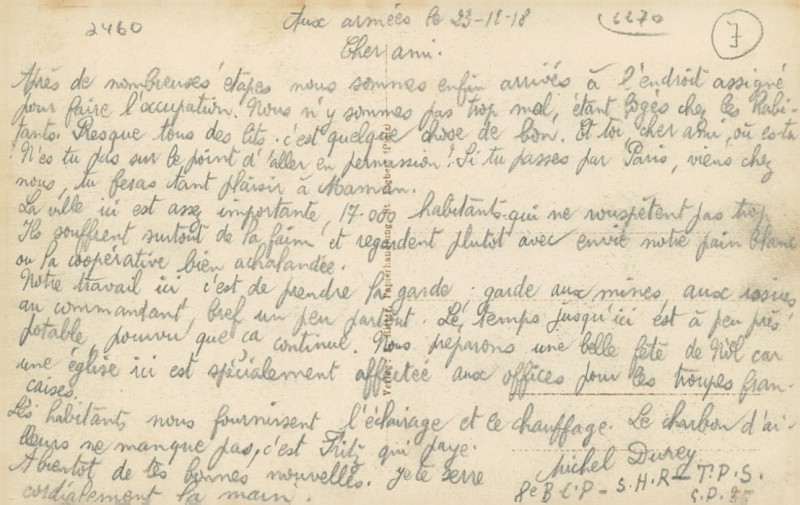 2460
Aux armées le 23-12-18
1270
7
Cher ami.
Après de nombreuses étapes nous sommes enfin arrivés à l'endroit assigné
pour faire l'occupation. Nous n'y sommes pas trop mal, étant logés chez les habi-
tants. Presque tous des lits. c'est quelque chose de bon. Et toi cher ami, où es-tu
? N'es tu pas sur le point d'aller en permission? Si tu passes par Paris, viens chez
nous, tu feras tant plaisir à Maman.
La ville ici est assez importante, 17-000 habitants-qui ne rouspètent pas trop
Ils souffrent surtout de la faim, et regardent plutôt avec envie notre pain blanc
ou la coopérative bien achalandée.
Notre travail ici c'est de prendre la garde : garde aux mines, aux usines
au commandant bref un peu partout. Le temps jusqu'ici est à peu près
potable, pourvu que ca continue. Nous préparons une belle fête de Noël car
une église ici est spécialement affectée aux offices pour les troupes fran-
caises.
Les habitants nous fournissent l'éclairage et le chauffage. Le charbon d'ai-
lleurs ne manque pas, c'est Fritz qui paye.
A bientôt de tes bonnes nouvelles. Je te serre
cordialement la main.
Michel Durey
8e B.C.P - S.H.R - T.P.S.
S.P.
Verlag